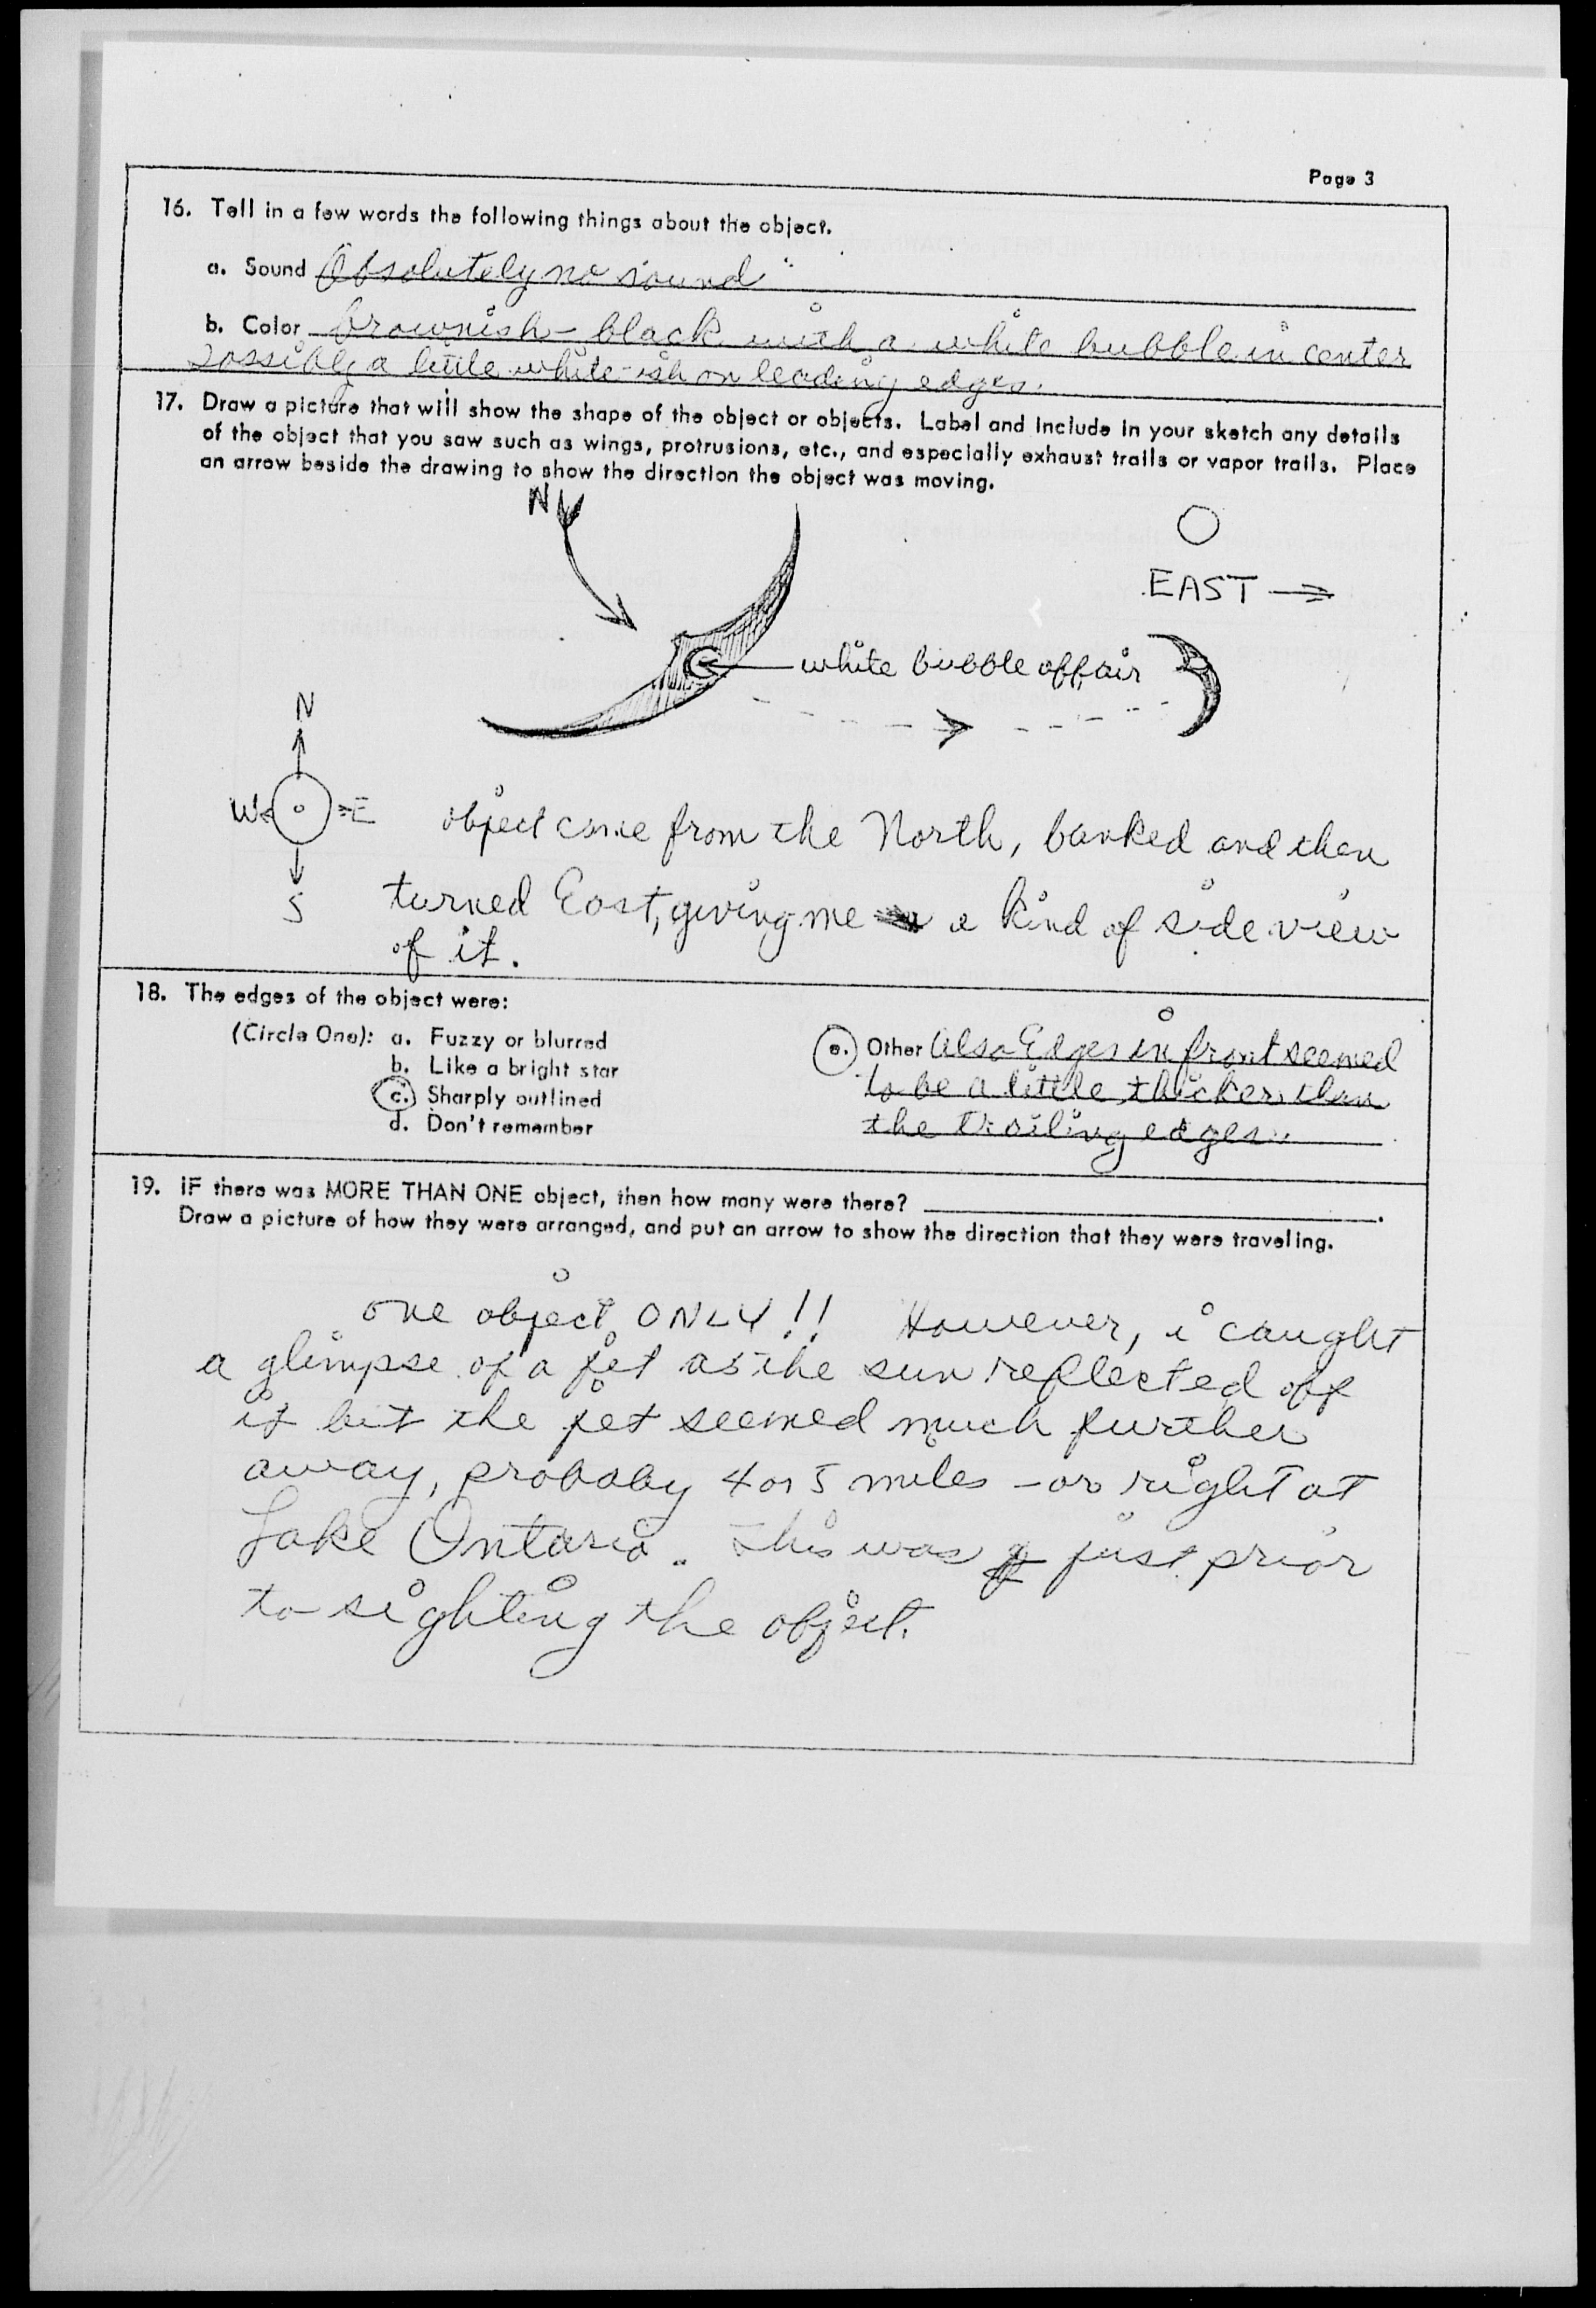 Page 3
16. Tell in a few words the following things about the object.
a. Sound Absolutely no sound
b. Color brownish - black with a white bubble in center
possibly a little white-ish on leading edges.
17. Draw a picture that will show the shape of the object or objects. Label and include in your sketch any details
of the object that you saw such as wings, protrusions, etc., and especially exhaust trails or vapor trails. Place
an arrow beside the drawing to show the direction the object was moving.
N
EAST
white bubble affair
N
W E
S
object came from the North, banked and then
turned East, giving me a kind of side view
of it.
18. The edges of the object were:
(Circle One): a. Fuzzy or blurred
b. Like a bright star
c. Sharply outlined
d. Don't remember
e. Other Also Edges in front seemed
to be a little thicker than
the trailing edges.
19. IF there was MORE THAN ONE object, then how many were there? .
Draw a picture of how they were arranged, and put an arrow to show the direction that they were traveling.
one object ONLY!! However, i caught
a glimpse of a jet as the sun reflected off
it but the jet seemed much further
away, probaby 4 or 5 miles - or right at
Lake Ontario. This was just prior
to sighting the object.